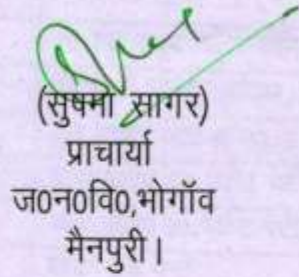 (सुषमा सागर)
प्राचार्या
ज0न0वि0,भोगॉव
मैनपुरी।